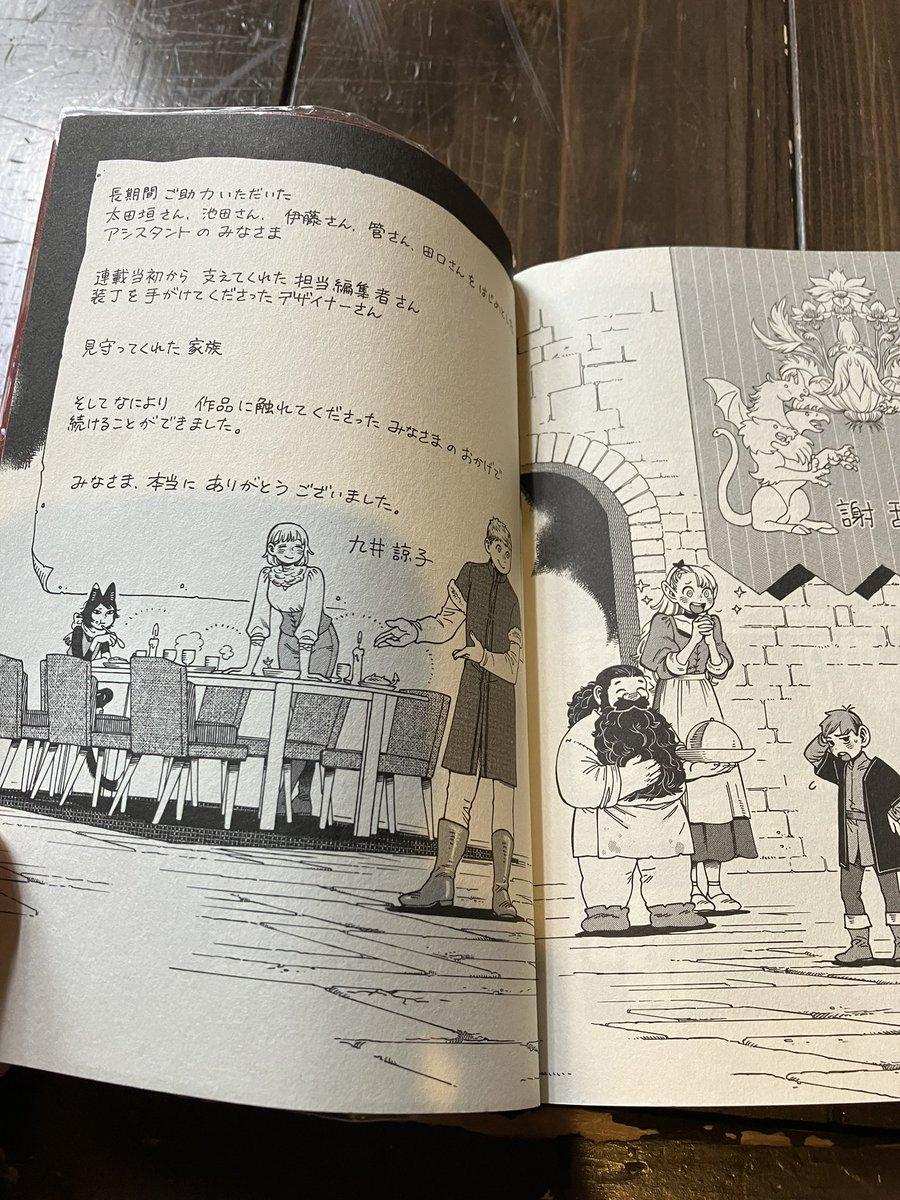 長期間 ご助力いただいた
太田垣さん、池田さん、伊藤さん、菅さん、田口さんを はじめとした
アシスタントの みなさま
連載当初から 支えてくれた 担当編集者さん
装丁を手がけてくださった デザイナーさん
見守ってくれた 家族
そしてなにより 作品に触れてくださった みなさまの おかげで
続けることができました。
みなさま、本当に ありがとう ございました。
九井 諒子
謝